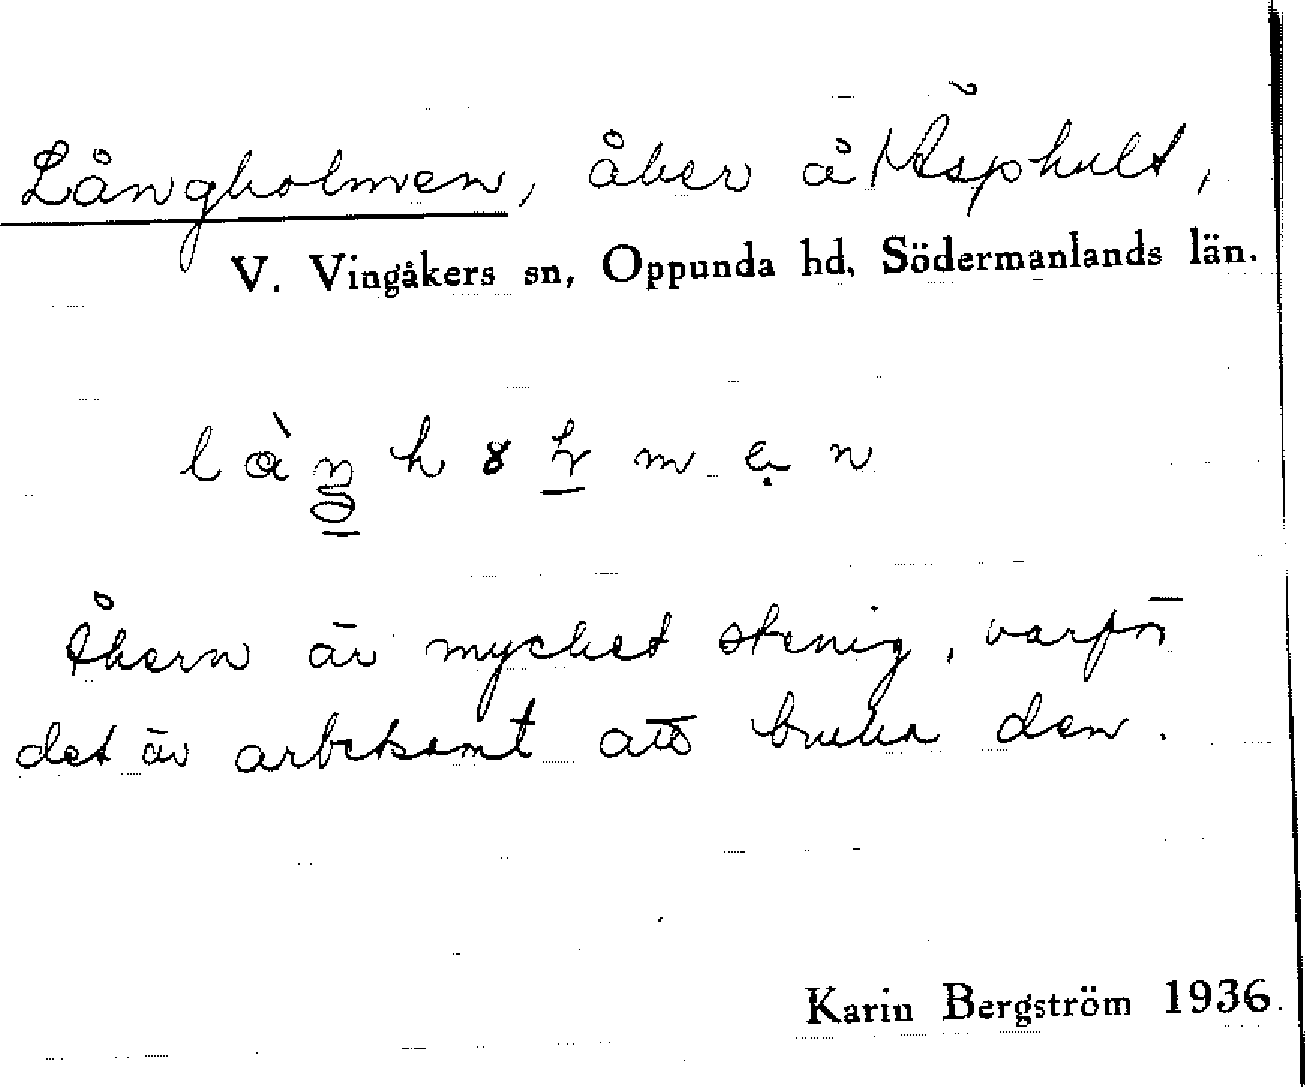 Långholmen, åker å Äsphult,
V. Vingåkers sn, Oppunda hd, Södermanlands län.
Åkern är mycket stenig, varför
det är arbetsamt att bruka den.
Karin Bergström 1936.